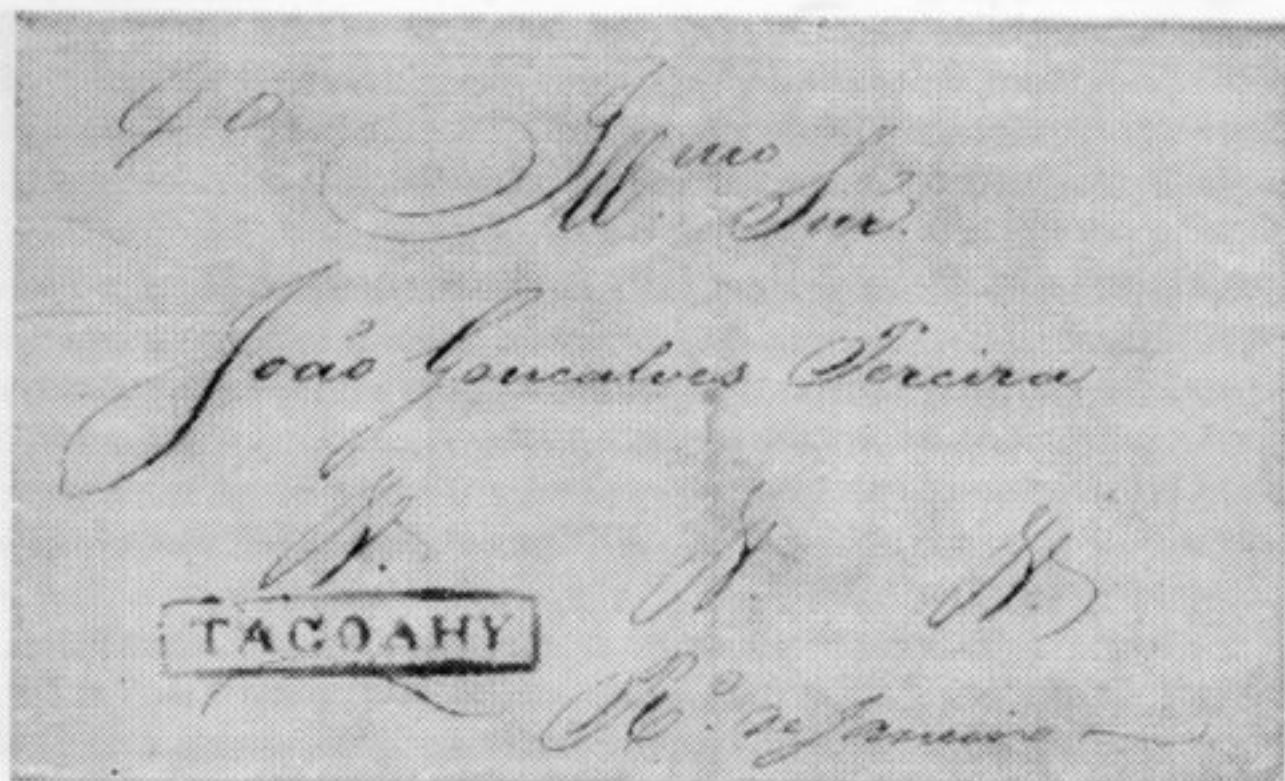 Ill.mo Snr.
João Goncalves Pereira
TAGOAHY
R.o de Janeiro